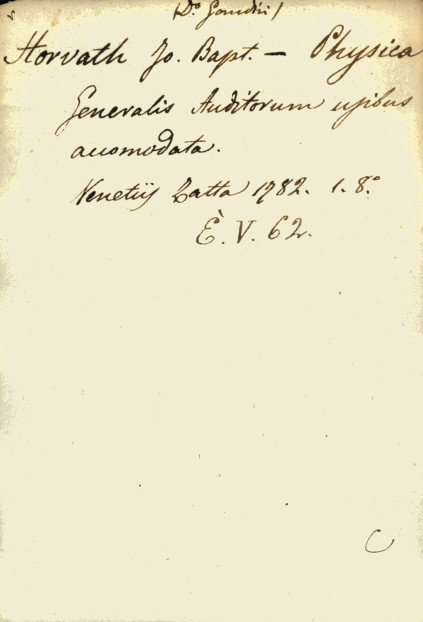 (D.º Gandini)
Horvath Jo. Bapt. — Physica
Generalis Auditorum usibus
accomodata.
Venetiis Zatta 1782. 1. 8.º
È. V. 62.
C